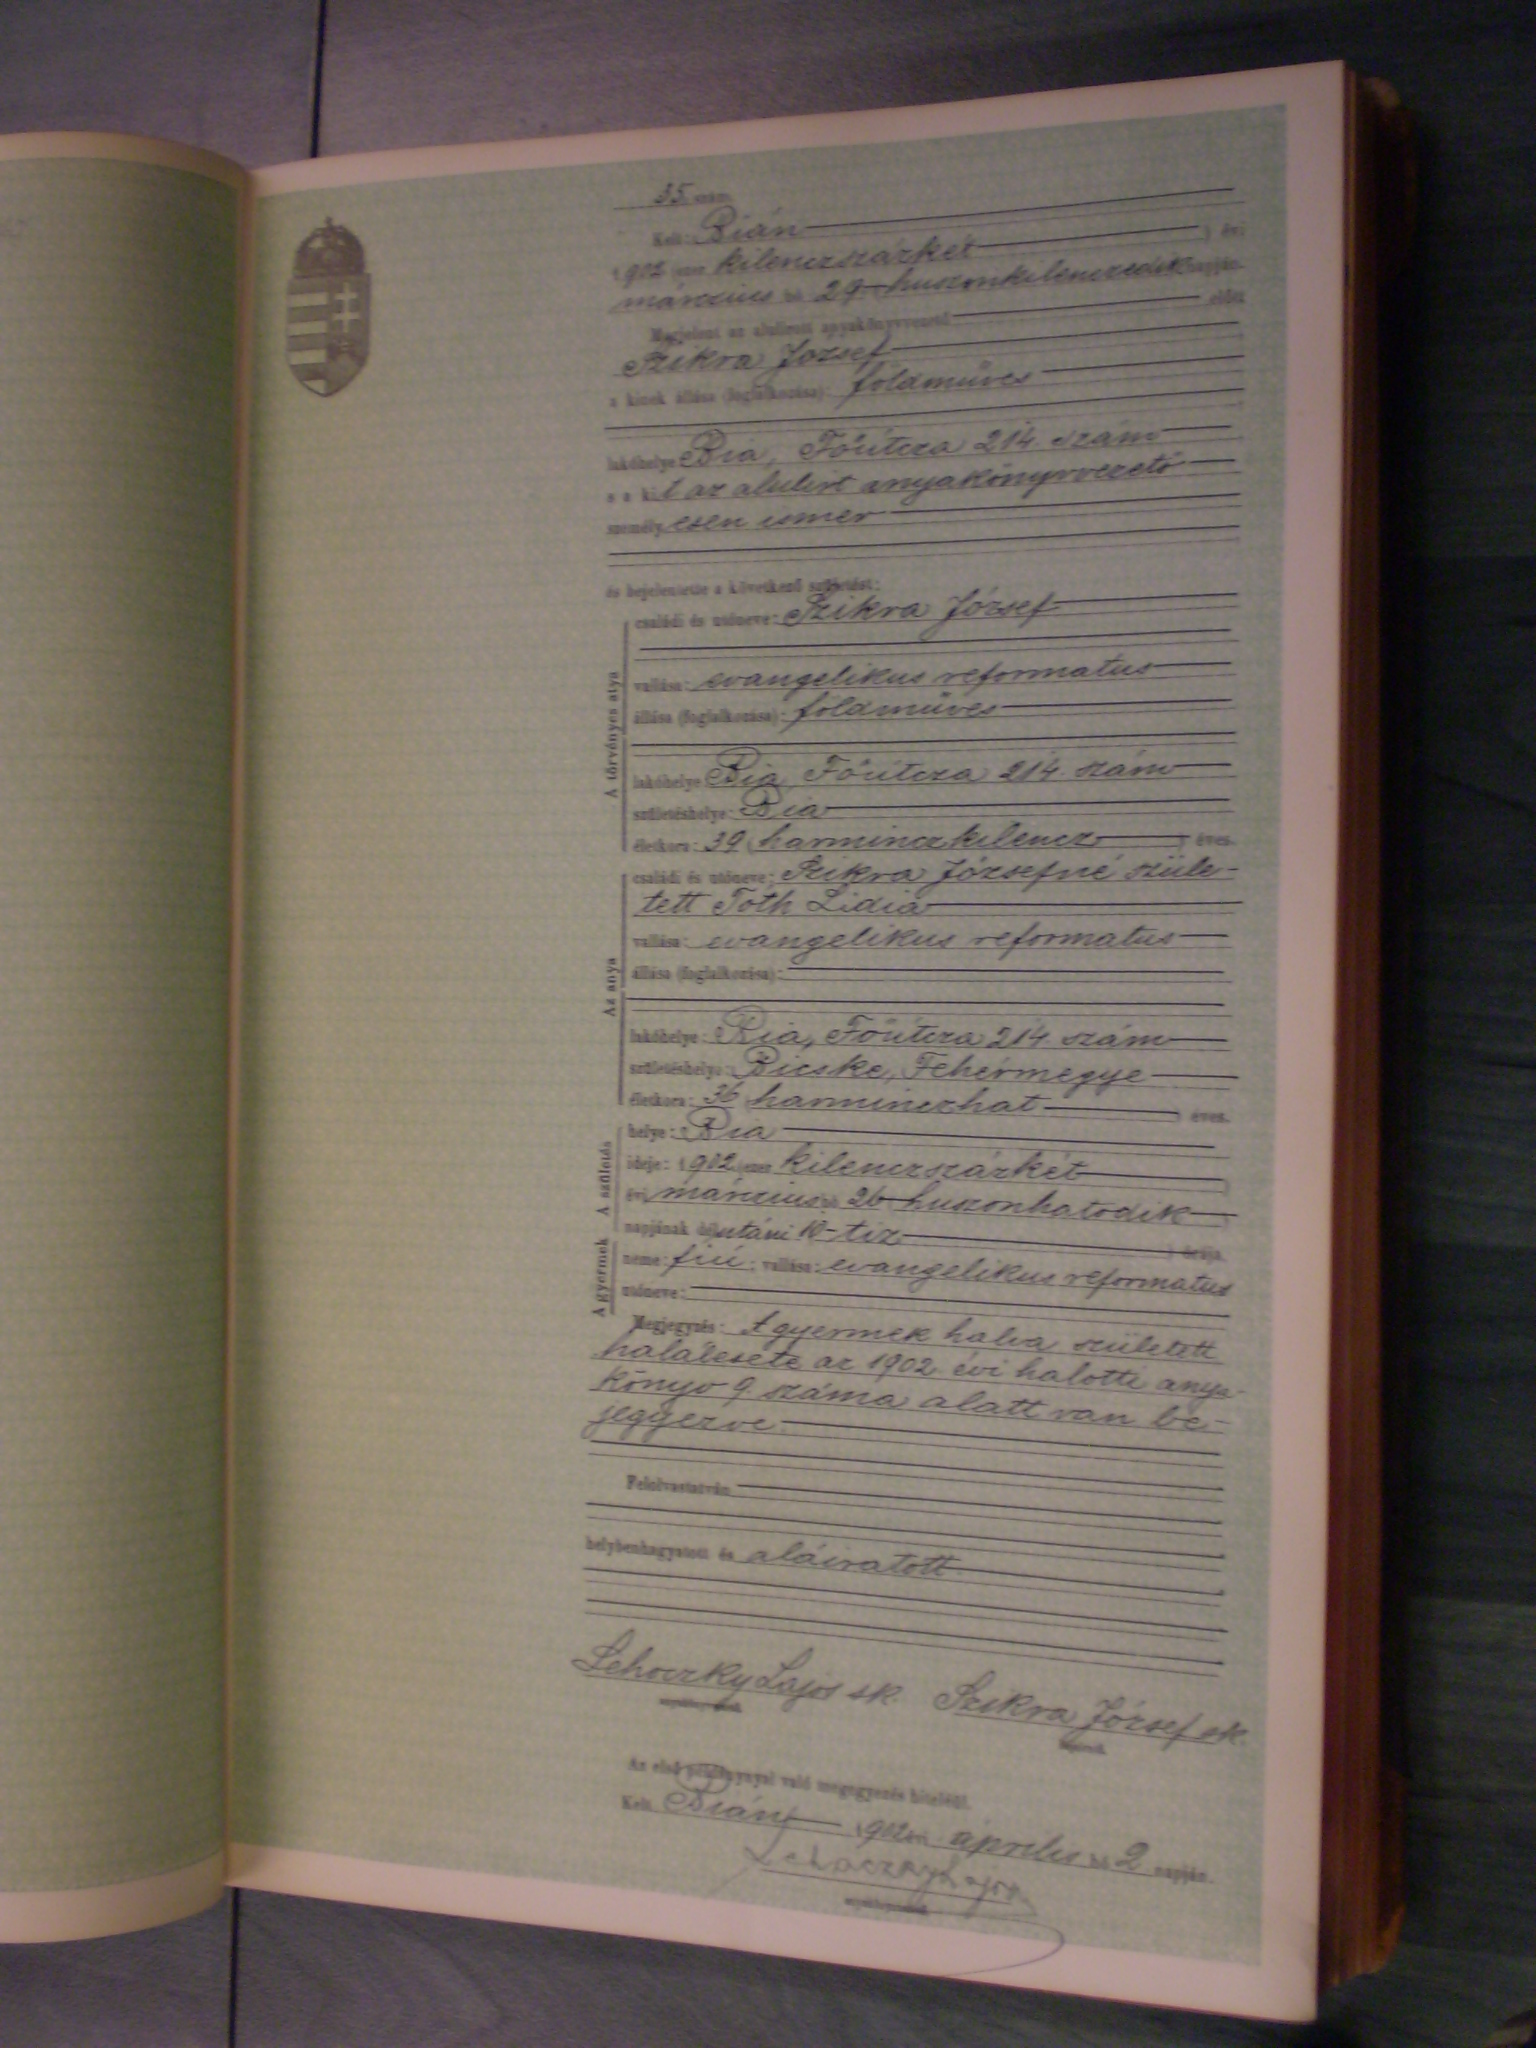 35. szám.
Kelt: Bián
1902 (ezer kilenczszázkét ) évi
márczius hó 29 (huszonkilenczedik napján.
Megjelent az alulirott anyakönyvvezető előtt
Szikra József
a kinek állása (foglalkozása): földmüves
lakóhelye Bia, Főútcza 214. szám
s a kit az alulirt anyakönyvvezető
személyesen ismer
és bejelentette a következő születést:
A törvényes atya
családi és utóneve: Szikra József
vallása: evangelikus reformatus
állása (foglalkozása): földmüves
lakóhelye Bia, Főútcza 214. szám
születéshelye: Bia
életkora: 39 (harminczkilencz ) éves.
Az anya
családi és utóneve: Szikra Józsefné szüle-
tett Tóth Lidia
vallása: evangelikus reformatus
állása (foglalkozása):
lakóhelye: Bia, Főútcza 214. szám
születéshelye: Bicske, Fehérmegye
életkora: 36 (harminczhat ) éves.
A születés
helye: Bia
ideje: 1902 (ezer kilenczszázkét )
évi márczius hó 26 (huszonhatodik )
napjának délutáni 10 (tiz ) órája.
A gyermek
neme: fiú; vallása: evangelikus reformatus
utóneve:
Megjegyzés: A gyermek halva született
halálesete az 1902. évi halotti anya-
könyv 9. száma alatt van be-
jegyezve.
Felolvastatván
helybenhagyatott és aláiratott.
Lehoczky Lajos sk. Szikra József sk.
anyakönyvvezető.
bejelentő.
Az első példánynyal való megegyezés hiteléül.
Kelt Bián 1902 évi április hó 2 napján.
Lehoczky Lajos
anyakönyvvezető.